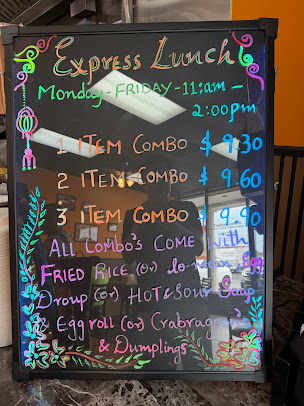 Express Lunch
Monday - FRIDAY - 11:am -
2:00pm
1 ITEM COMBO $ 9.30
2 ITEM COMBO $ 9.60
3 ITEM COMBO $ 9.90
ALL COMBO'S COME with
FRIED RICE (or) lo-mein Egg
Droup (or) HOT & Sour Soup
& Egg roll (or) Crabragoon's
& Dumplings